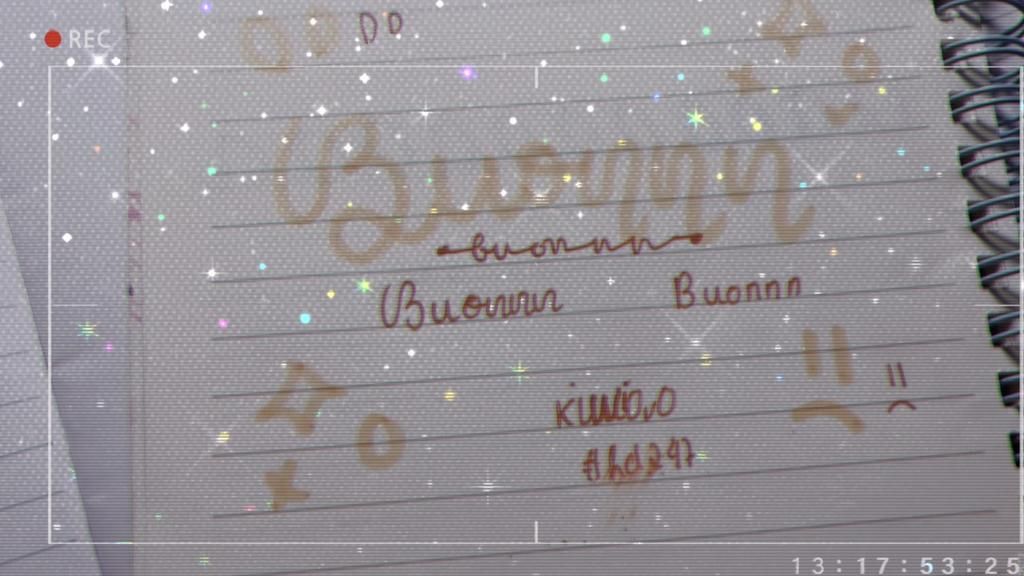 REC
Buonnn
buonnnn
Buonnnn Buonnn
#hd247
13:17:53:25